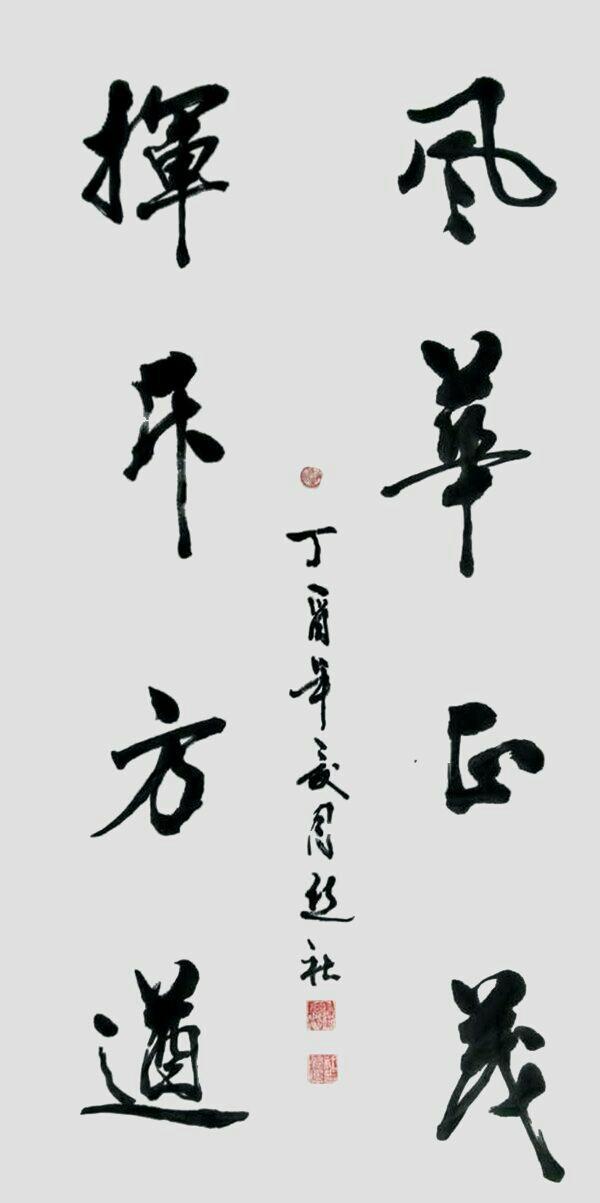 風華正茂
揮斥方遒
丁酉年夏周社